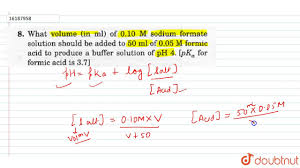 16187958
doubtnut
8. What volume (in ml) of 0.10 M sodium formate
solution should be added to 50 ml of 0.05 M formic
acid to produce a buffer solution of pH 4. [pKa for
formic acid is 3.7]
pH = pKa + log [salt]
[Acid]
[salt] = 0.10M × V
V+50
[Acid] = 50 × 0.05M